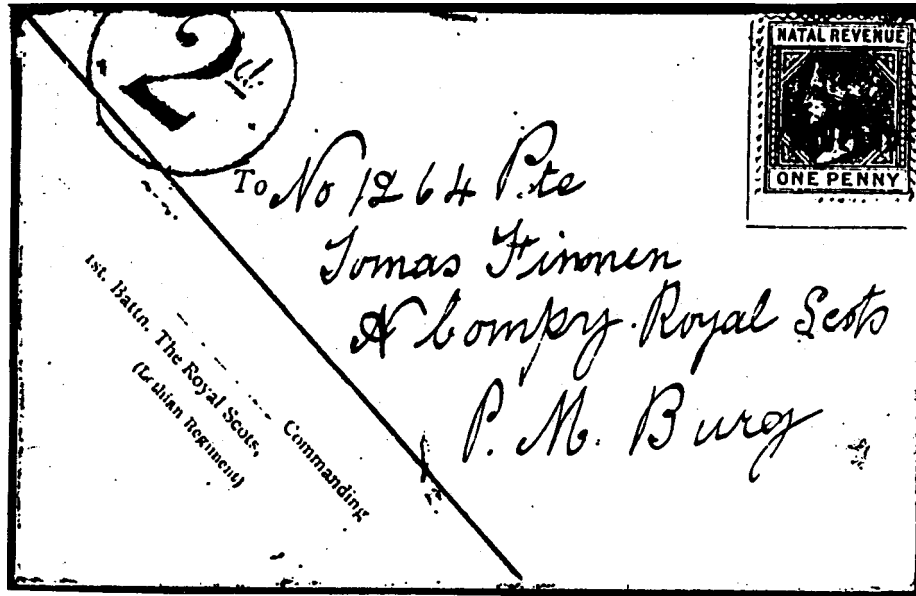 2d.
NATAL REVENUE
ONE PENNY
To No 1264 Pte
Tomas Finnen
A Compy. Royal Scots
P. M. Burg
Commanding
1st. Battn. The Royal Scots,
(Lothian Regiment)